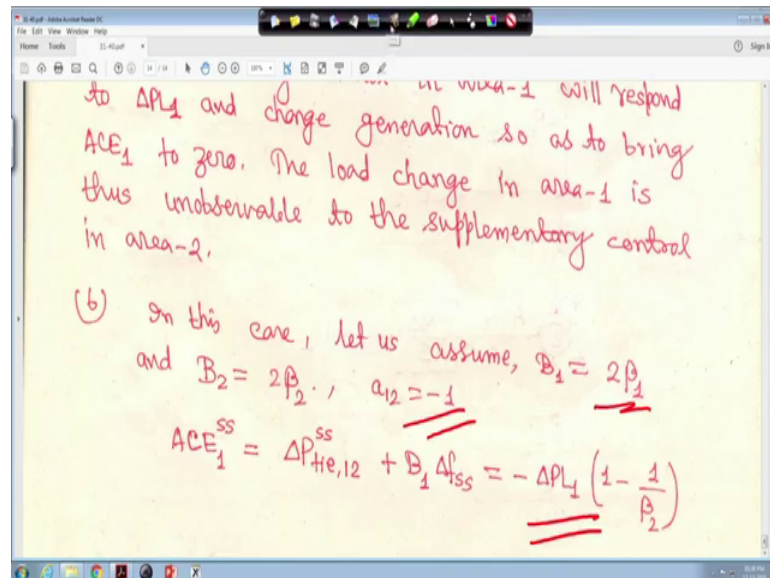 31-40.pdf - Adobe Acrobat Reader DC
File Edit View Window Help
Home Tools 31-40.pdf × Sign In
14 / 14
to ΔPL₁ and in area-1 will respond
ACE₁ to zero. change generation so as to bring
The load change in area-1 is
thus unobservable to the supplementary control
in area-2.
(b) In this case, let us assume, B₁ = 2β₁
and B₂ = 2β₂., a₁₂ = -1
ACE₁^ss = ΔP^ss_tie,12 + B₁ Δf_ss = - ΔPL₁ (1 - 1/β₂)